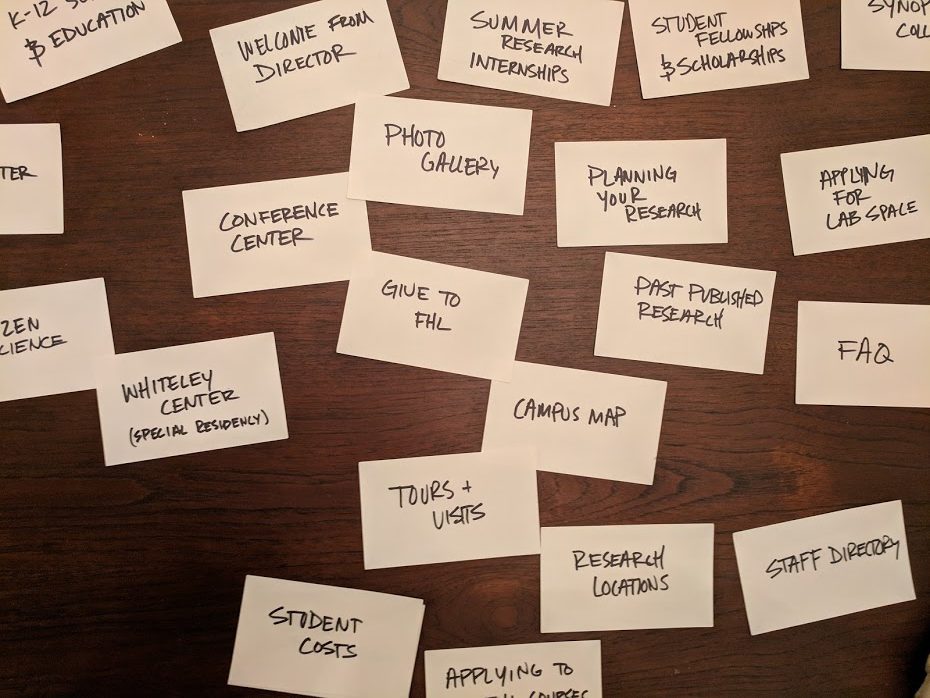 K-12
& EDUCATION
WELCOME FROM
DIRECTOR
SUMMER
RESEARCH
INTERNSHIPS
STUDENT
FELLOWSHIPS
& SCHOLARSHIPS
SYNOP
COLL
TER
PHOTO
GALLERY
PLANNING
YOUR
RESEARCH
APPLYING
FOR
LAB SPACE
CONFERENCE
CENTER
GIVE TO
FHL
PAST PUBLISHED
RESEARCH
FAQ
ZEN
CIENCE
WHITELEY
CENTER
(SPECIAL RESIDENCY)
CAMPUS MAP
TOURS +
VISITS
RESEARCH
LOCATIONS
STAFF DIRECTORY
STUDENT
COSTS
APPLYING TO
COURSES